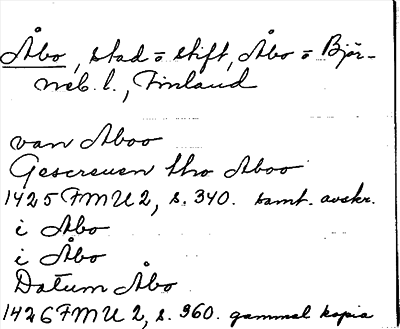 Åbo, stad o stift, Åbo o Björ-
neb. l., Finland
van Aboo
Gescreuen tho Aboo
1425 FMU 2, s. 340. samt. avskr.
i Åbo
i Åbo
Datum Åbo
1426 FMU 2, s. 360. gammal kopia